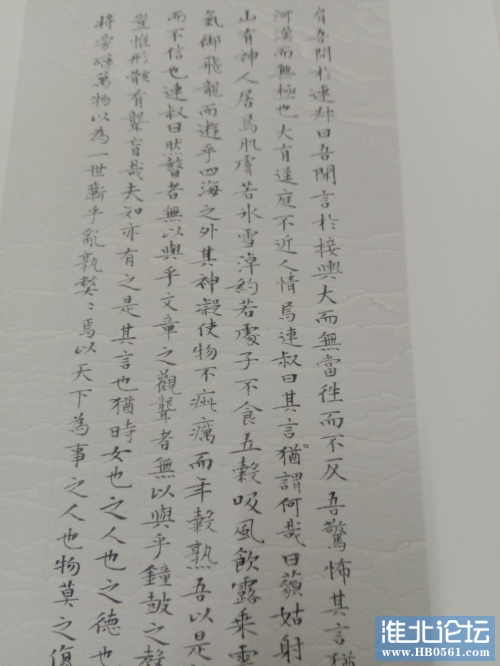 肩吾問於連叔曰吾聞言於接輿大而無當徃而不反吾驚怖其言猶
河漢而無極也大有逕庭不近人情焉連叔曰其言猶謂何哉曰藐姑射
山有神人居焉肌膚若氷雪淖約若處子不食五穀吸風飲露乘雲
氣御飛龍而遊乎四海之外其神凝使物不疵癘而年穀熟吾以是
而不信也連叔曰然瞽者無以與乎文章之觀聾者無以與乎鐘鼓之聲
豈惟形骸有聾盲哉夫知亦有之是其言也猶時女也之人也之德也
將旁礴萬物以為一世蘄乎亂孰弊〻焉以天下為事之人也物莫之傷
淮北论坛
www.HB0561.com